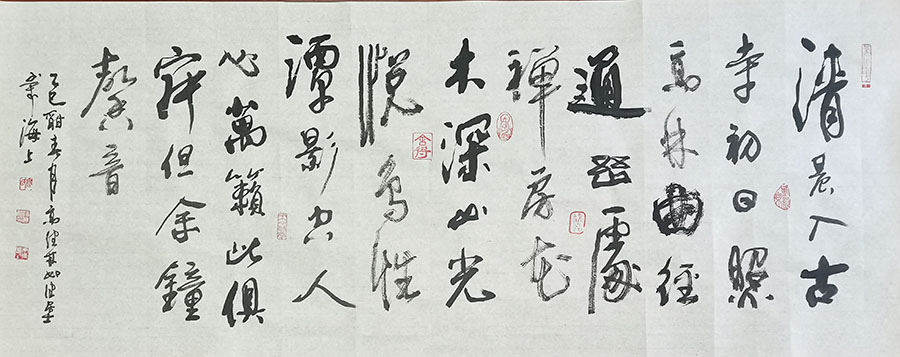 清晨入古
寺初日照
高林曲徑
通幽處
禪房花
木深山光
悅鳥性
潭影空人
心萬籟此俱
寂但余鐘
磬音
乙巳春月高
海上